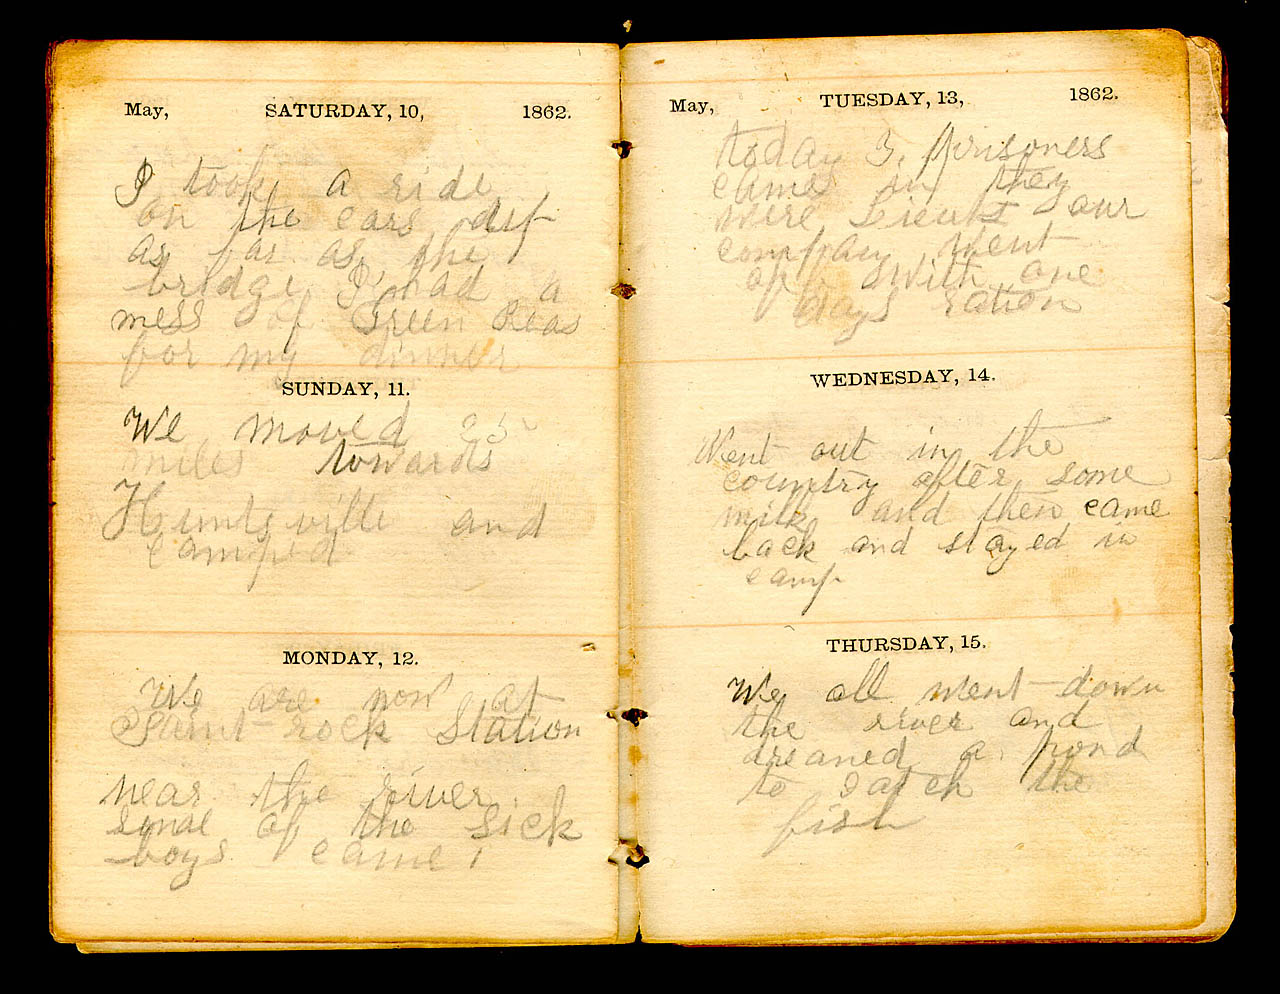 May, SATURDAY, 10, 1862.
I took a ride
on the cars
as far as the
bridge I had a
mess of Green Peas
for my dinner
SUNDAY, 11.
We moved 25
miles towards
Huntsville and
camped
MONDAY, 12.
We are now at
Paint rock Station
near the river
some of the Sick
boys came
May, TUESDAY, 13, 1862.
today 3. prisoners
came in they
were Lieuts our
company went
of With one
days ration
WEDNESDAY, 14.
Went out in the
country after some
milk and then came
back and stayed in
camp
THURSDAY, 15.
We all went down
the river and
dreaned a pond
to catch the
fish